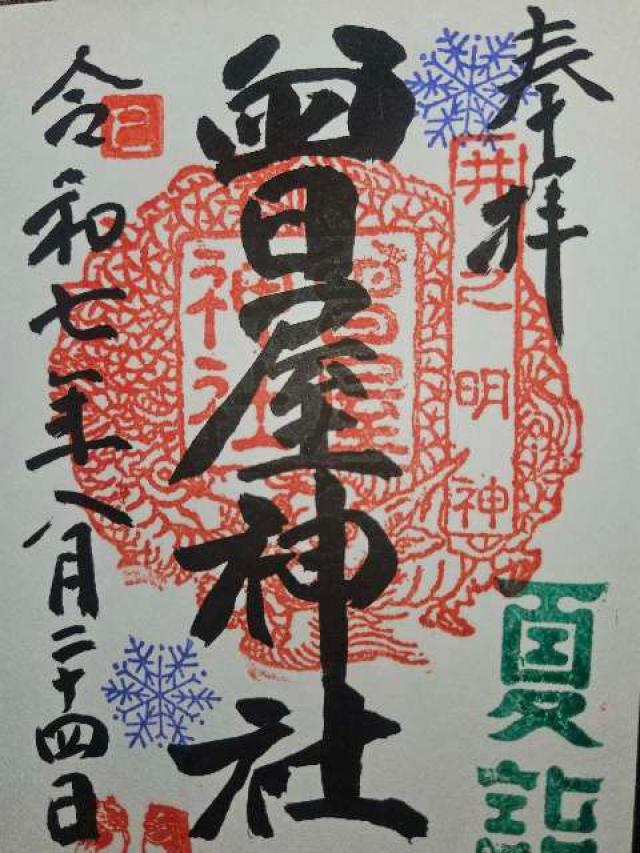 奉拝
井之明神
夏詣
曽屋神社
曽屋
神社
令和七年八月二十四日
巳